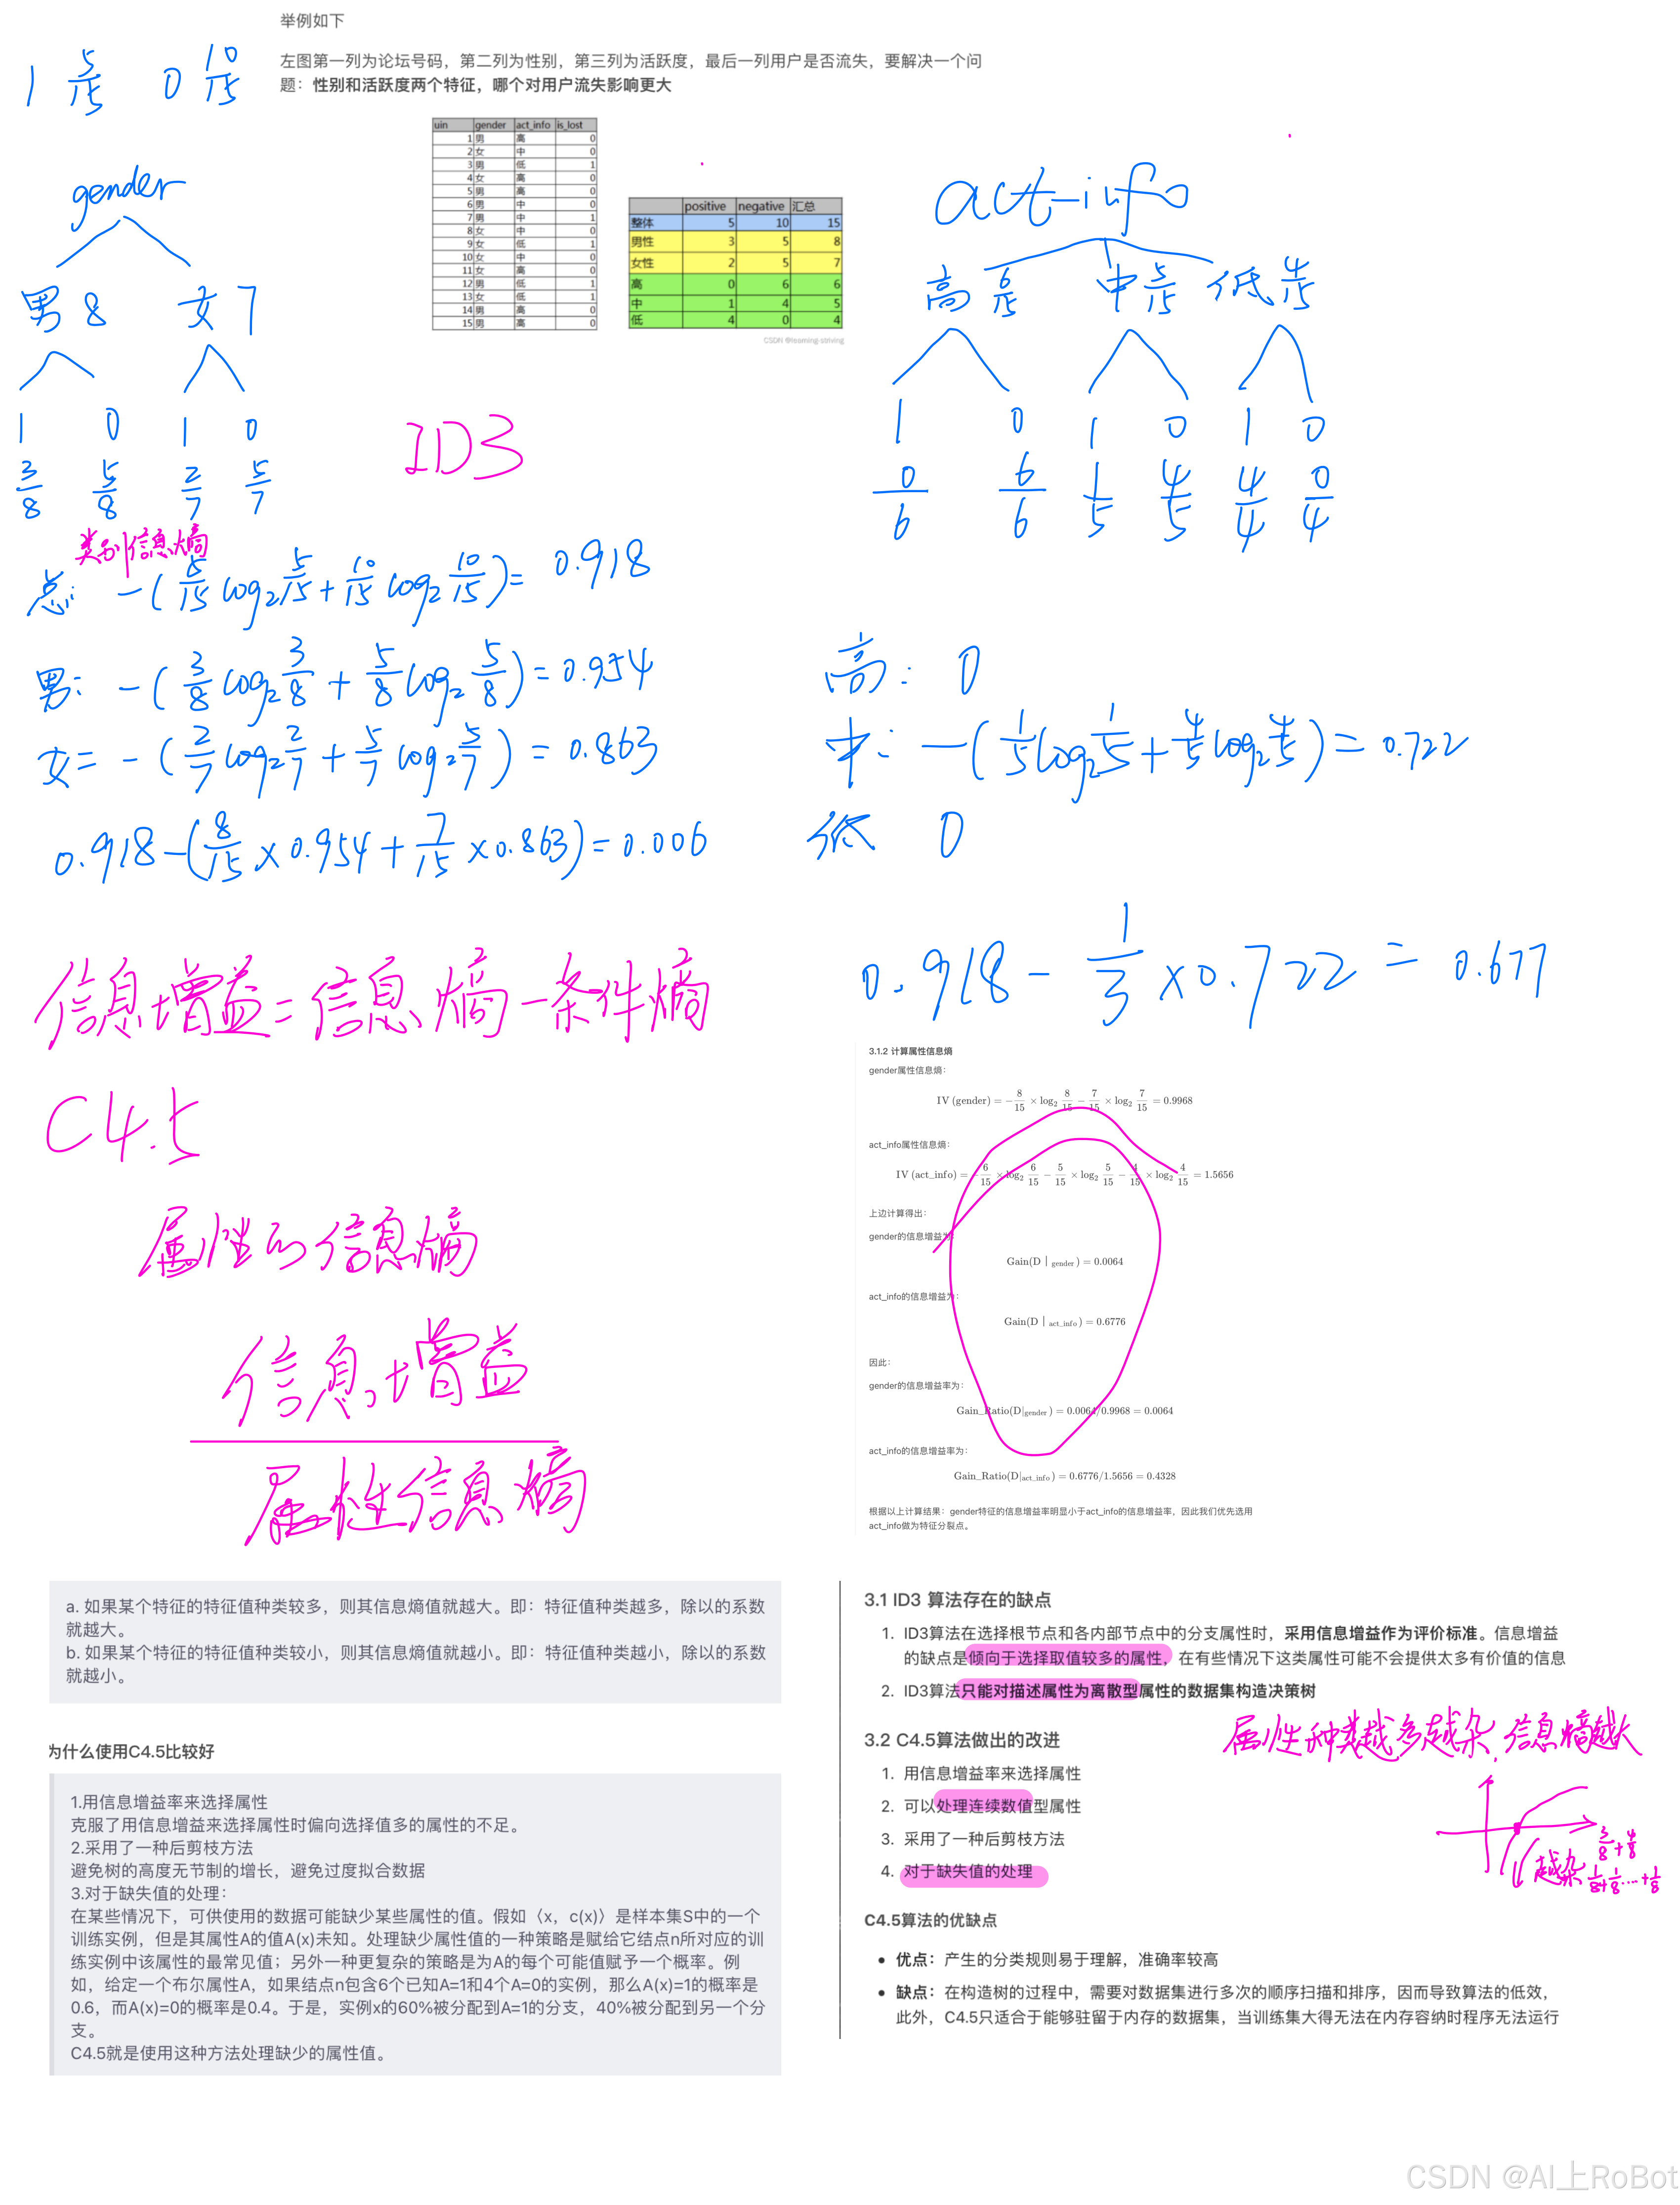 举例如下
左图第一列为论坛号码，第二列为性别，第三列为活跃度，最后一列用户是否流失，要解决一个问
题：性别和活跃度两个特征，哪个对用户流失影响更大
1 5/15 0 10/15
uin gender act_info is_lost
1 男 高 0
2 女 中 0
3 男 低 1
4 女 高 0
5 男 高 0
6 男 中 0
7 男 中 1
8 女 中 0
9 女 低 1
10 女 中 0
11 女 高 0
12 男 低 1
13 女 低 1
14 男 高 0
15 男 高 0
positive negative 汇总
整体 5 10 15
男性 3 5 8
女性 2 5 7
高 0 6 6
中 1 4 5
低 4 0 4
CSDN @learning-striving
gender
男 8 女 7
1 0 1 0
3/8 5/8 2/7 5/7
ID3
act-info
高 6/15 中 5/15 低 4/15
1 0 1 0 1 0
0/6 6/6 1/5 4/5 4/4 0/4
类别信息熵
总: -(5/15 log₂ 5/15 + 10/15 log₂ 10/15) = 0.918
男: -(3/8 log₂ 3/8 + 5/8 log₂ 5/8) = 0.954
女= -(2/7 log₂ 2/7 + 5/7 log₂ 5/7) = 0.863
0.918-(8/15 × 0.954 + 7/15 × 0.863) = 0.006
高: 0
中: -(1/5 log₂ 1/5 + 4/5 log₂ 4/5) = 0.722
低 0
0.918 - 1/3 × 0.722 = 0.677
信息增益=信息熵-条件熵
C4.5
属性的信息熵
信息增益
属性信息熵
3.1.2 计算属性信息熵
gender属性信息熵：
IV (gender) = −8/15 × log₂ 8/15 − 7/15 × log₂ 7/15 = 0.9968
act_info属性信息熵：
IV (act_info) = −6/15 × log₂ 6/15 − 5/15 × log₂ 5/15 − 4/15 × log₂ 4/15 = 1.5656
上边计算得出：
gender的信息增益为：
Gain(D | gender) = 0.0064
act_info的信息增益为：
Gain(D | act_info) = 0.6776
因此：
gender的信息增益率为：
Gain_Ratio(D|gender) = 0.0064/0.9968 = 0.0064
act_info的信息增益率为：
Gain_Ratio(D|act_info) = 0.6776/1.5656 = 0.4328
根据以上计算结果：gender特征的信息增益率明显小于act_info的信息增益率，因此我们优先选用
act_info做为特征分裂点。
a. 如果某个特征的特征值种类较多，则其信息熵值就越大。即：特征值种类越多，除以的系数
就越大。
b. 如果某个特征的特征值种类较小，则其信息熵值就越小。即：特征值种类越小，除以的系数
就越小。
为什么使用C4.5比较好
1.用信息增益率来选择属性
克服了用信息增益来选择属性时偏向选择值多的属性的不足。
2.采用了一种后剪枝方法
避免树的高度无节制的增长，避免过度拟合数据
3.对于缺失值的处理：
在某些情况下，可供使用的数据可能缺少某些属性的值。假如〈x，c(x)〉是样本集S中的一个
训练实例，但是其属性A的值A(x)未知。处理缺少属性值的一种策略是赋给它结点n所对应的训
练实例中该属性的最常见值；另外一种更复杂的策略是为A的每个可能值赋予一个概率。例
如，给定一个布尔属性A，如果结点n包含6个已知A=1和4个A=0的实例，那么A(x)=1的概率是
0.6，而A(x)=0的概率是0.4。于是，实例x的60%被分配到A=1的分支，40%被分配到另一个分
支。
C4.5就是使用这种方法处理缺少的属性值。
3.1 ID3 算法存在的缺点
1. ID3算法在选择根节点和各内部节点中的分支属性时，采用信息增益作为评价标准。信息增益
的缺点是倾向于选择取值较多的属性，在有些情况下这类属性可能不会提供太多有价值的信息
2. ID3算法只能对描述属性为离散型属性的数据集构造决策树
3.2 C4.5算法做出的改进
1. 用信息增益率来选择属性
2. 可以处理连续数值型属性
3. 采用了一种后剪枝方法
4. 对于缺失值的处理
属性种类越多越杂，信息熵越大
3/8+4/8
越杂 1/8+1/8...+1/8
C4.5算法的优缺点
• 优点：产生的分类规则易于理解，准确率较高
• 缺点：在构造树的过程中，需要对数据集进行多次的顺序扫描和排序，因而导致算法的低效，
此外，C4.5只适合于能够驻留于内存的数据集，当训练集大得无法在内存容纳时程序无法运行
CSDN @AI上RoBot